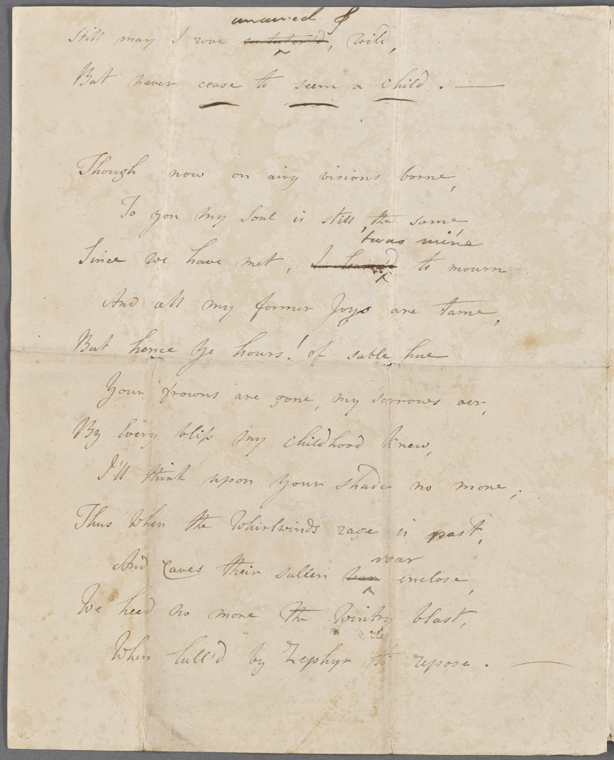 unawed &
Still may I rove untutor'd, wild,
But never cease to seem a child.
Though now on airy visions borne,
To you my Soul is still the same
'twas mine
Since we have met, to mourn
And all my former Joys are tame,
But hence Ye hours! of sable hue
Your frowns are gone, my sorrows oer,
By Every bliss my Childhood knew,
I'll think upon your shade no more;
Thus When the Whirlwinds rage is past,
roar
And Caves their sullen enclose,
We heed no more the Wintry blast,
When lull'd by Zephyr to repose.